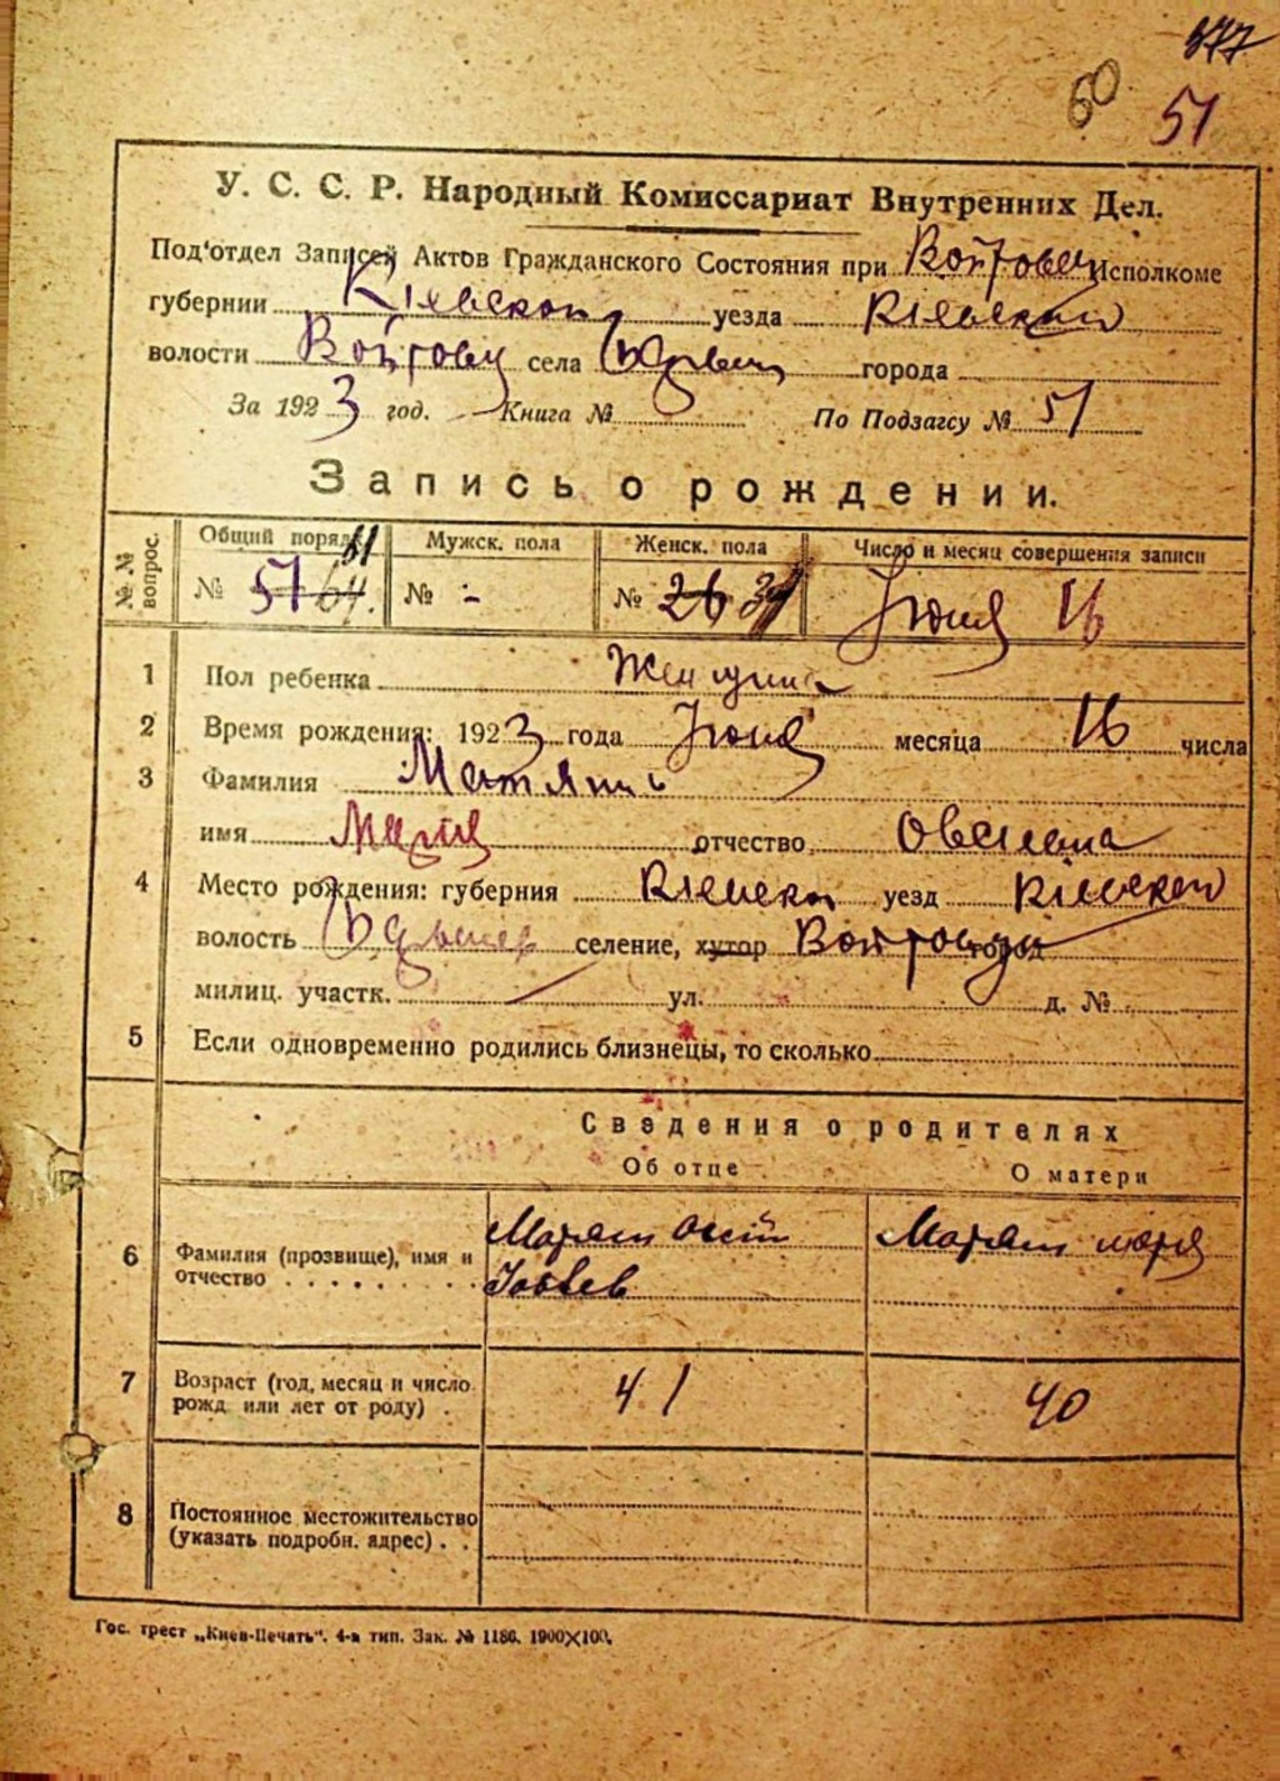 877
60 51
У. С. С. Р. Народный Комиссариат Внутренних Дел.
Под'отдел Записей Актов Гражданского Состояния при Войтовец Исполкоме
губернии Кіевской уезда Кіевской
волости Войтовц села города
За 1923 год. Книга № По Подзагсу № 51
Запись о рождении.
№ № вопрос.
Общий поряд. Мужск. пола Женск. пола Число и месяц совершения записи
№ 51 64. № - № 26 Июня 16
1 Пол ребенка Женщина
2 Время рождения: 1923 года Июня месяца 16 числа
3 Фамилия Матяш
имя Мария отчество
4 Место рождения: губерния Кіевской уезд Кіевской
волость селение, хутор Войтовцы город
милиц. участк. ул. д. №
5 Если одновременно родились близнецы, то сколько
Сведения о родителях
Об отце О матери
6 Фамилия (прозвище), имя и отчество Матяш Матяш
7 Возраст (год, месяц и число рожд или лет от роду) . 41 40
8 Постоянное местожительство (указать подробн. адрес) . .
Гос. трест „Киев-Печать“. 4-я тип. Зак. № 1186. 1900×100.